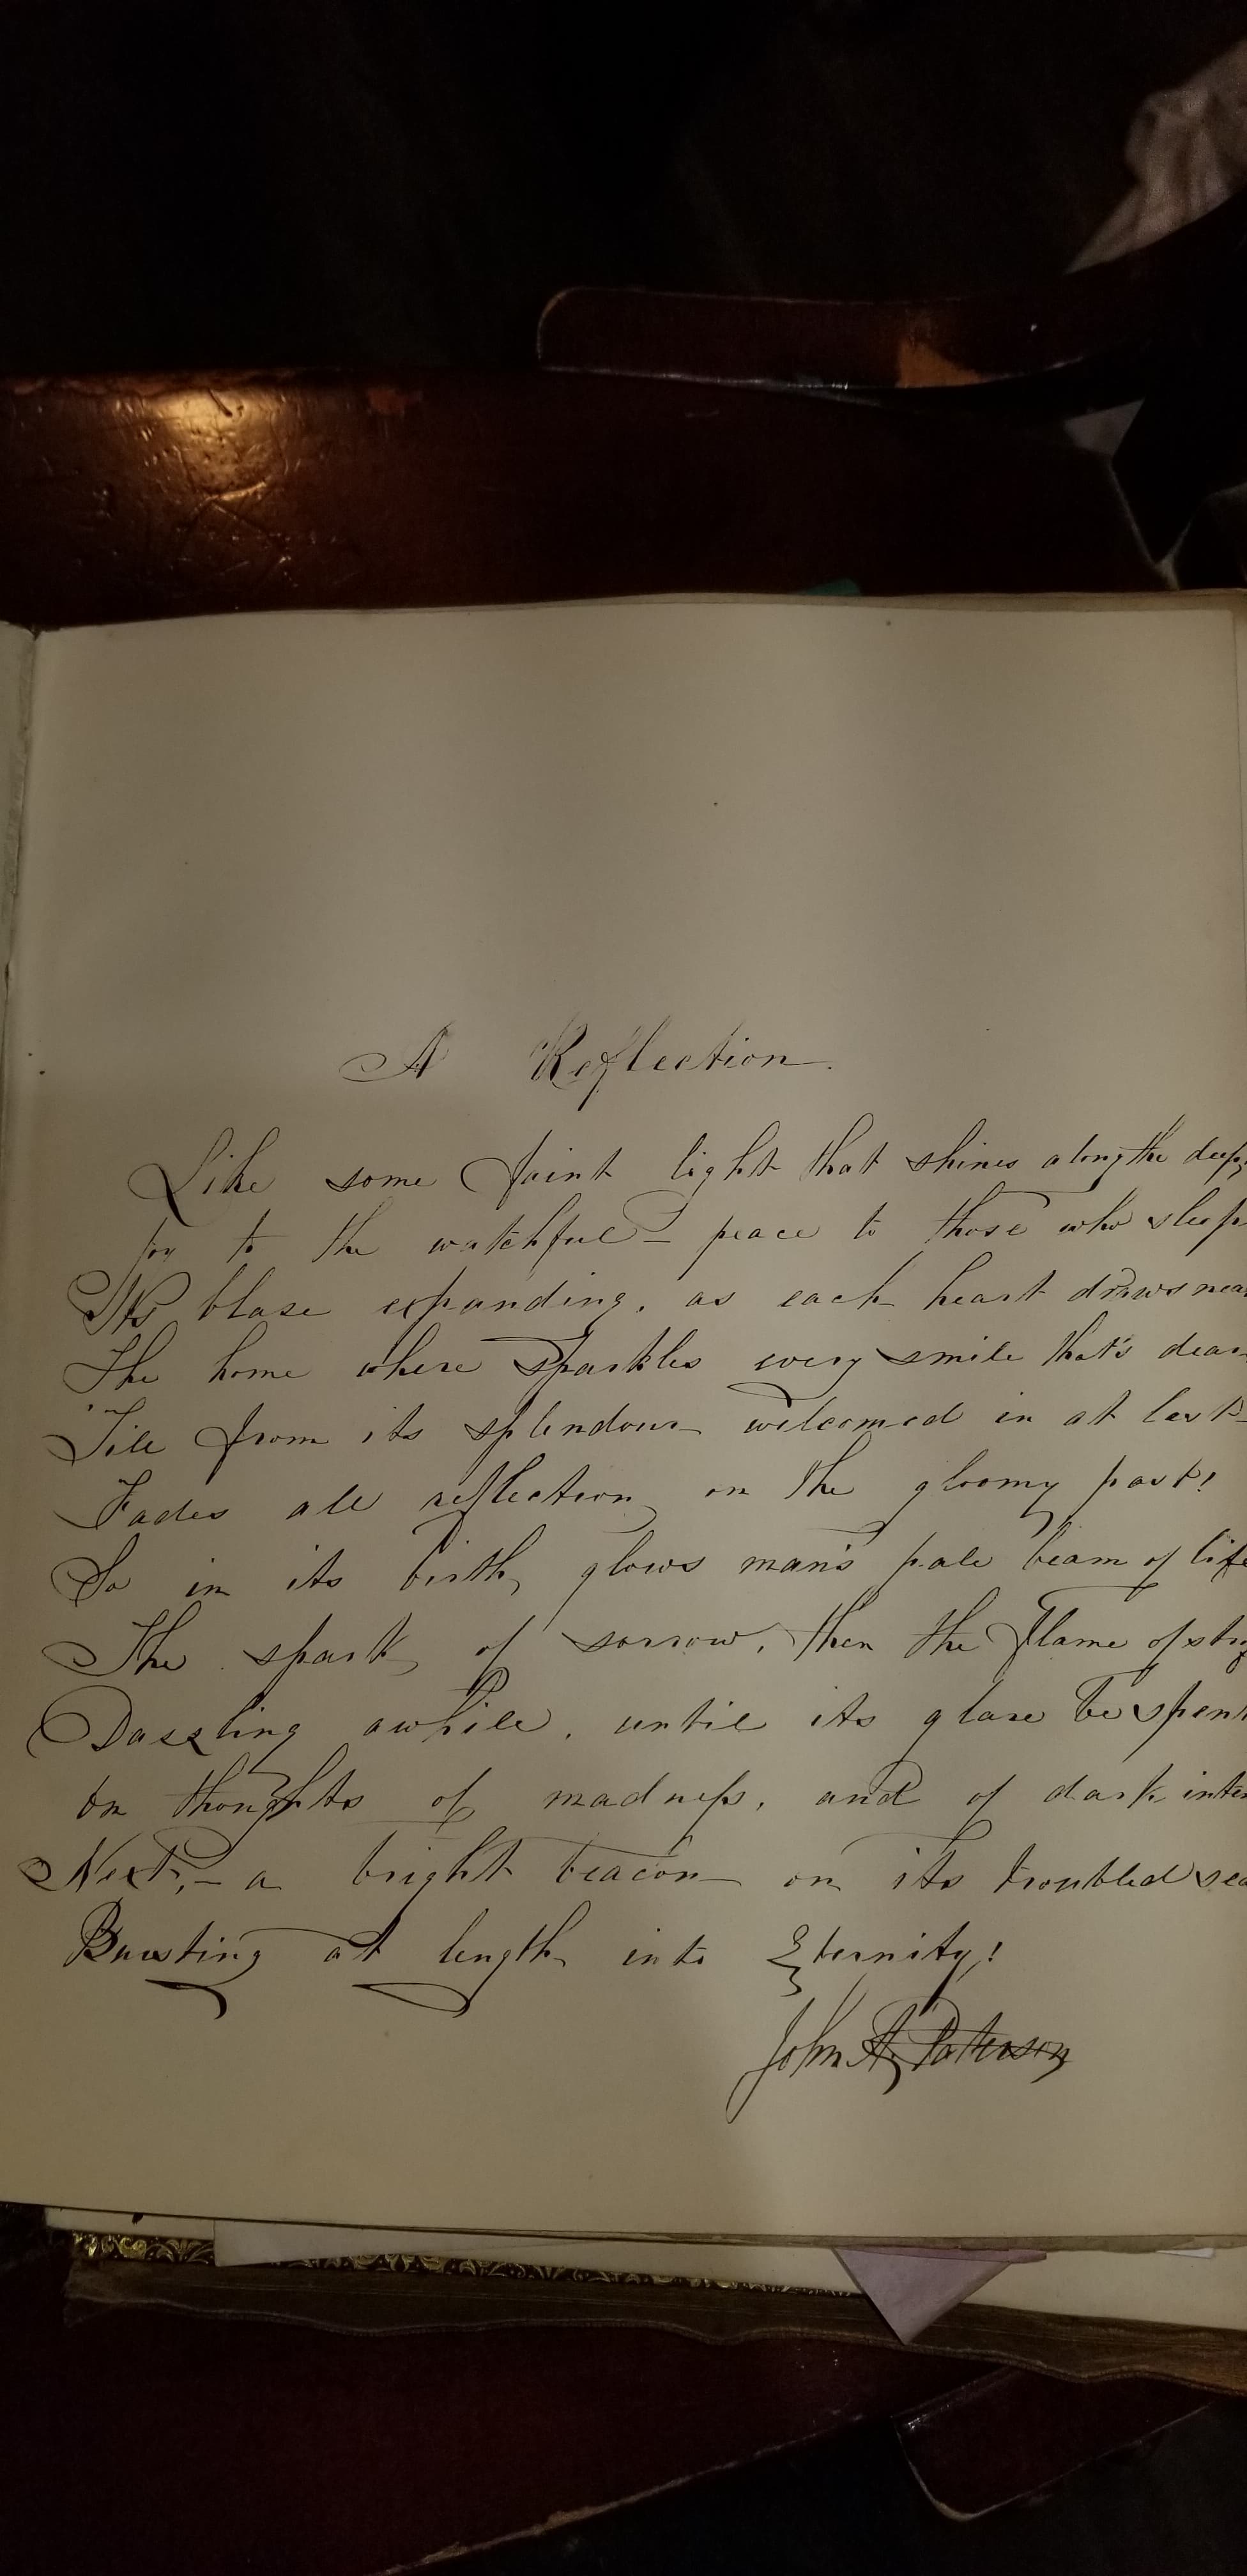 A Reflection.
Like some faint light that shines along the deep,
Joy to the watchful — peace to those who sleep
Its blaze expanding, as each heart draws near
The home where sparkles every smile that's dear
Till from its splendour welcomed in at last
Fades all reflection on the gloomy past!
So in its birth, glows man's pale beam of life
The spark of sorrow, then the flame of
Dazzling awhile, until its glare be spent
On thoughts of madness, and of dark
Next, — a bright beacon on its troubled sea
Bursting at length into Eternity!
John A. Paterson